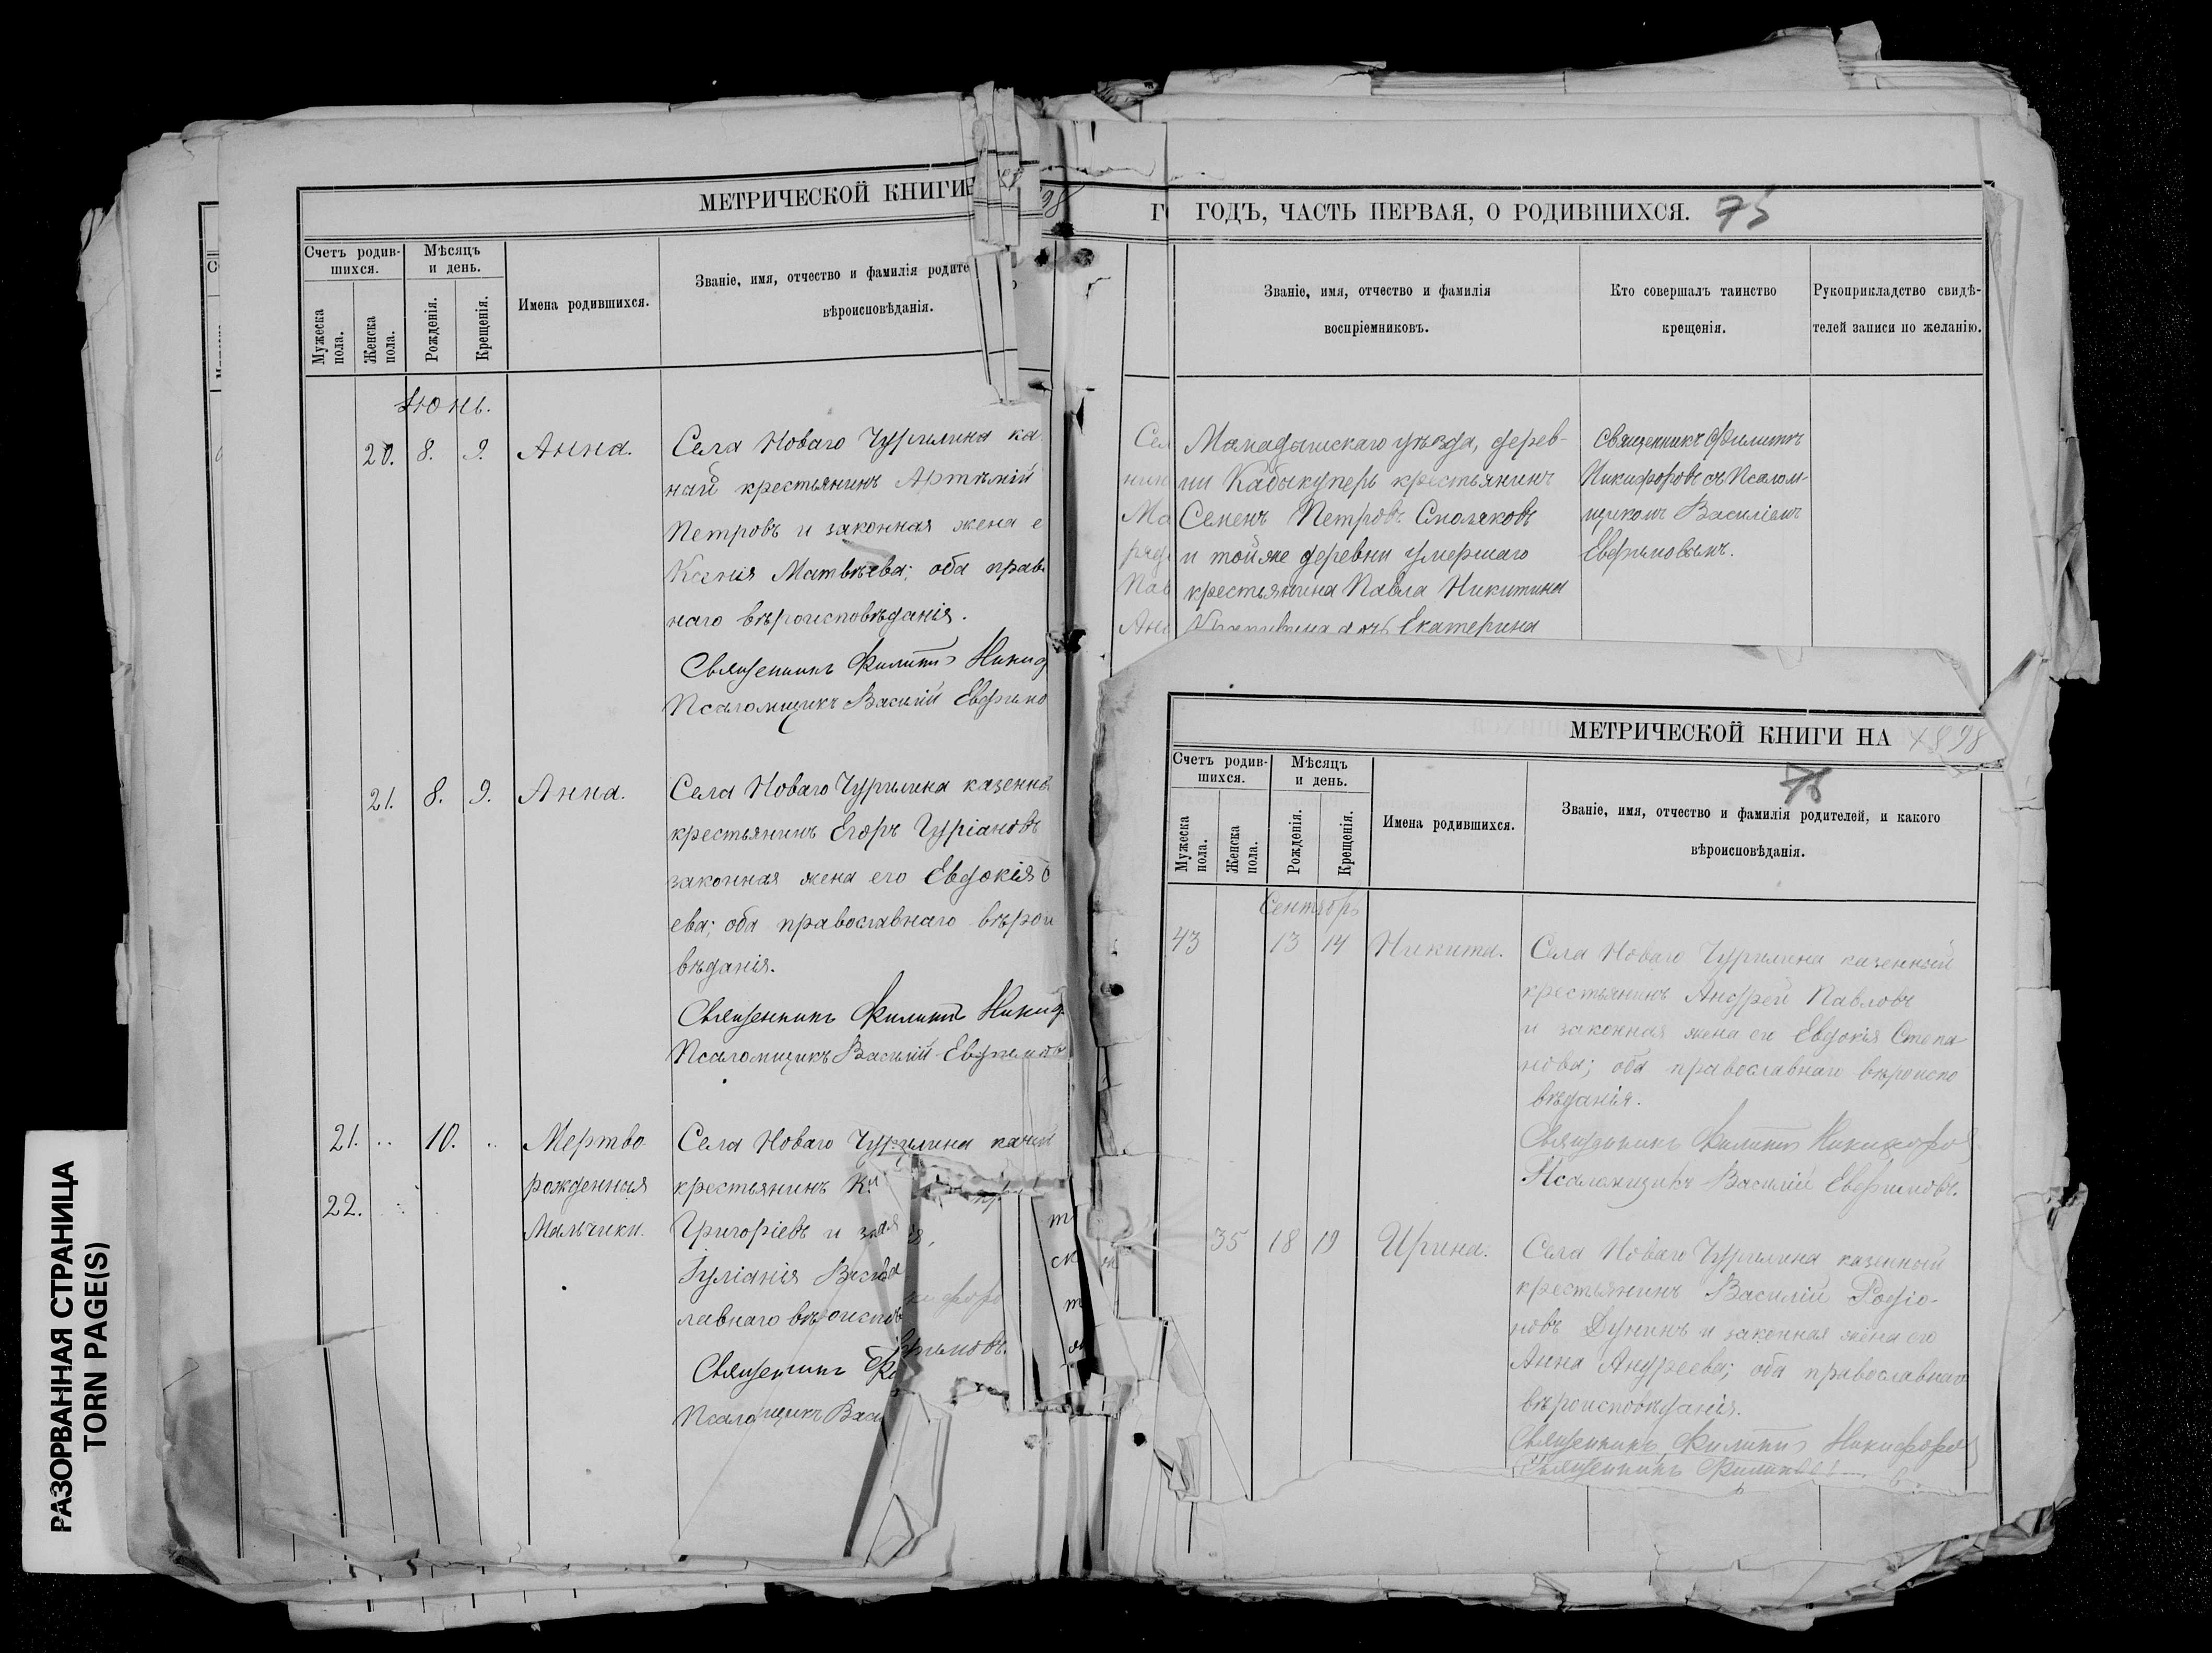 РАЗОРВАННАЯ СТРАНИЦА
TORN PAGE(S)
МЕТРИЧЕСКОЙ КНИГИ
98
Счетъ родив-
шихся.
Мѣсяцъ
и день.
Мужеска
пола.
Женска
пола.
Рожденія.
Крещенія.
Имена родившихся.
Званіе, имя, отчество и фамилія родите
вѣроисповѣданія.
Іюнь.
20. 8. 9. Анна. Села Новаго Чурилина ка
ный крестьянинъ Артемій
Петровъ и законная жена е
Ксенія Матвѣева; оба прав
наго вѣроисповѣданія.
Священникъ Филиппъ Никиф
Псаломщикъ Василій Евфимо
21. 8. 9. Анна. Села Новаго Чурилина казенно
крестьянинъ Егоръ Гуріановъ
законная жена его Евдокія
ева; оба православнаго вѣрои
вѣданія.
Священникъ Филиппъ Никиф
Псаломщикъ Василій Евфимов
21. 10. Мертво Села Новаго Чурилина
рожденныя крестьянинъ
22. Мальчики. Григоріевъ и
Іуліанія
лавнаго
Священникъ
Псаломщикъ Васи
ГОДЪ, ЧАСТЬ ПЕРВАЯ, О РОДИВШИХСЯ. 75
Званіе, имя, отчество и фамилія
воспріемниковъ.
Кто совершалъ таинство
крещенія.
Рукоприкладство свидѣ-
телей записи по желанію.
Сел
нин
Ма
Пав
Мамадышскаго уѣзда, дерев-
ни Кабыкуперь крестьянинъ
Семенъ Петровъ Смоляковъ
и той же деревни умершаго
крестьянина Павла Никитина
дочь Екатерина
Священникъ Филиппъ
Никифоровъ съ Псалом-
щикомъ Василіемъ
Евфимовымъ.
МЕТРИЧЕСКОЙ КНИГИ НА 1898
75
Счетъ родив-
шихся.
Мѣсяцъ
и день.
Мужеска
пола.
Женска
пола.
Рожденія.
Крещенія.
Имена родившихся.
Званіе, имя, отчество и фамилія родителей, и какого
вѣроисповѣданія.
Сентябрь
43 13 14 Никита. Села Новаго Чурилина казенный
крестьянинъ Андрей Павловъ
и законная жена его Евдокія Степа
нова; оба православнаго вѣроиспо
вѣданія.
Священникъ Филиппъ Никифоро
Псаломщикъ Василій Евфимовъ.
35 18 19 Ирина. Села Новаго Чурилина казенный
крестьянинъ Василій Родіо-
новъ Дунинъ и законная жена его
Анна Андреева; оба православнаго
вѣроисповѣданія.
Священникъ Филиппъ Никифоро
Священникъ